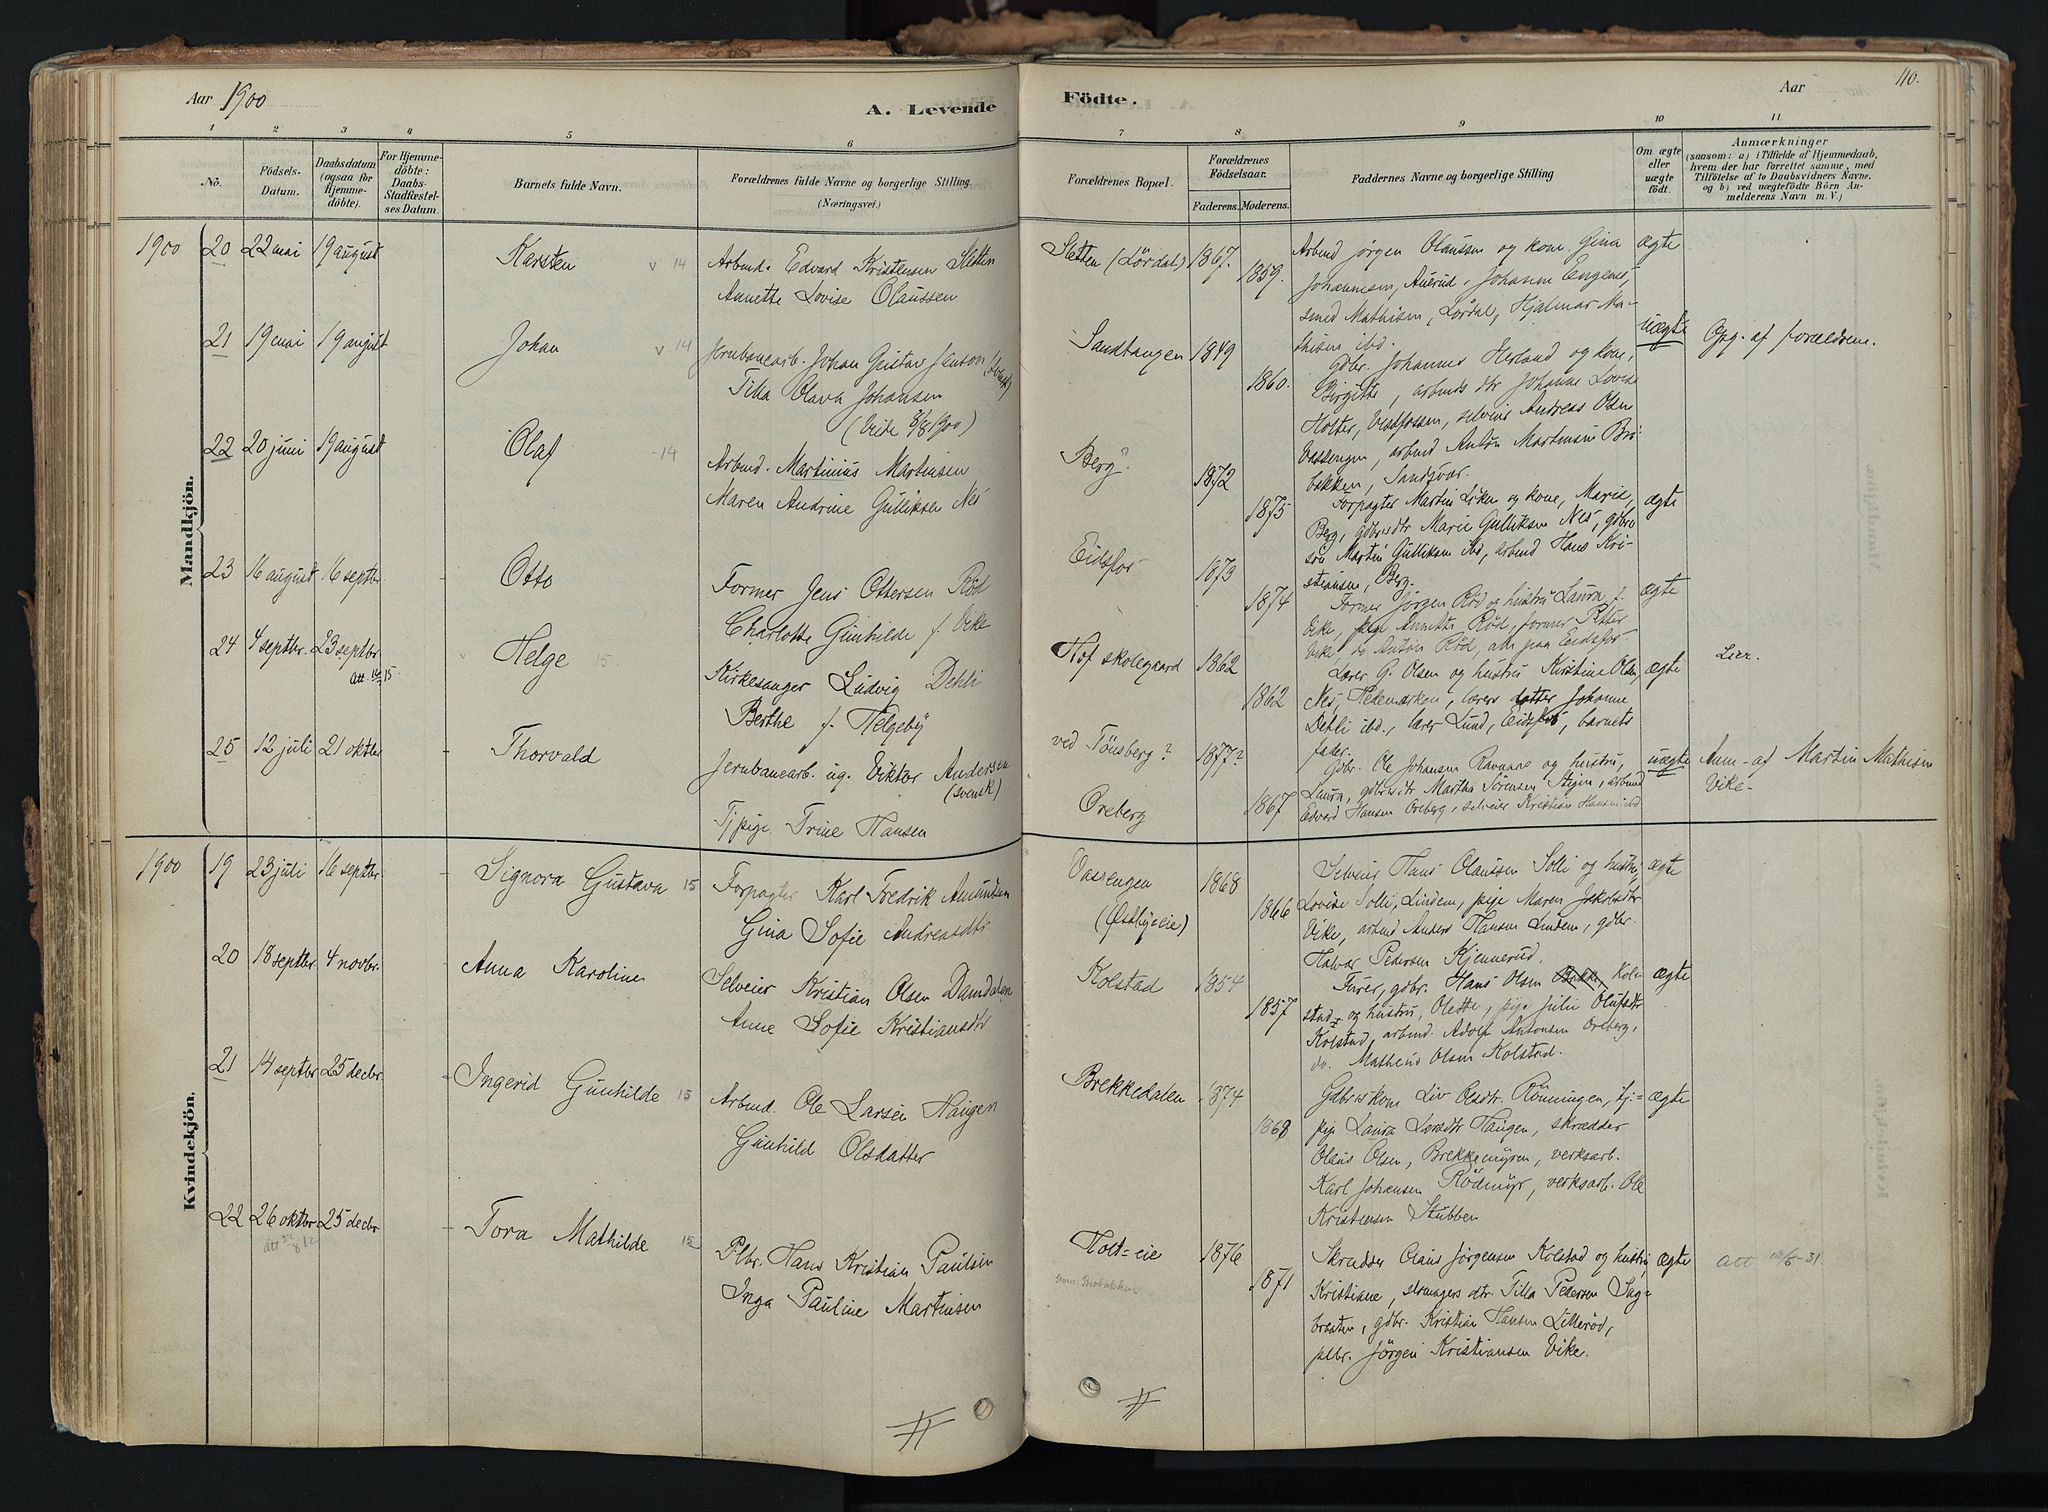 Aar 1900
A. Levende
Födte.
Aar
110.
1 2 3 4 5 6 7 8 9 10 11
No.
Födsels-
Datum.
Daabsdatum
(ogsaa for
Hjemme-
döbte).
For Hjemme-
döbte:
Daabs-
Stadfæstel-
ses Datum.
Barnets fulde Navn.
Forældrenes fulde Navne og borgerlige Stilling.
(Næringsvei.)
Forældrenes Bopæl.
Forældrenes
Födselsaar.
Faderens. Moderens.
Faddernes Navne og borgerlige Stilling
Om ægte
eller
uægte
födt.
Anmærkninger
(saasom: a) i Tilfælde af Hjemmedaab,
hvem der har forrettet samme, med
Tilföielse af to Daabsvidners Navne.
og b) ved uægtefödte Börn An-
melderens Navn m. V.)
Mandkjön.
1900 20 22 mai 19 august Karsten v 14
Arbmd. Edvard Kristensen Sletten
Annette Lovise Olaussen
Sletten (Lördal) 1867.
1859.
Arbmd Jörgen Olaussen og kone Gina
Johannesen, Auerud, Johanne Engene,
smed Mathisen, Lördal, Hjalmar Ma-
thisen ibd.
ægte
21 19 mai 19 august Johan v 14
Jernbanearb. Johan Gustav Jenson (svensk)
Tilla Olava Johansen
(Vike 8/8 1900)
Sandtangen 1849
1860.
Gdbr. Johannes Hesland og kone,
Birgitte, arbmds dtr Johanne Lovise
Holter, Vestfossen, selveier Andreas Olsen
Vassengen, arbmd Anton Martinsen Brö-
bakken, Sandsvær.
uægte
Opg. af forældrene.
22 20 juni 19 august Olaf -14
Arbmd. Martinius Martinsen
Maren Andrine Gulliksen Nes
Berg? 1872
1875
Forpagter Martin Liken og kone, Marie,
Berg, gdbrsdtr Marie Gulliksen Nes, gdbrs
sön Martin Gulliksen ibd, arbmd Hans Kri-
stiansen, Berg.
ægte
23 16 august 16 septbr Otto
Former Jens Ottersen Röd
Charlotte Gunhilde f. Vike
Eidsfos 1873
1874
Former Jörgen Röd og hustru Laura f.
Vike, pige Annette Röd, former Petter
Vike og Anton Röd, alle paa Eidsfos.
ægte
24 4 septbr. 23 septbr Helge 15
Att. 15.
Kirkesanger Ludvig Dehli
Berthe f. Helgeby
Hof skolegaard 1862
1862
Lærer G. Olsen og hustru Kirstine Olsen,
Nes, Hedemarken, lærers datter Johanne
Dehli ibd., lærer Lund, Eidsfos, barnets
fader.
ægte
Lier.
25 12 juli 21 oktbr Thorvald
Jernbanearb. ug. Viktor Andersen
(svensk)
Tj.pige Trine Hansen
ved Tönsberg? 1877?
Oreberg 1867
Gdbr. Ole Johansen Ravnaas og hustru,
Laura, gdbrsdtr Martha Sörensen Stejen, arbmd
Edvard Hansen Oreberg, selveier Kristian Hansen ibd
uægte
Anm. af Martin Mathisen
Vike.
Kvindekjön.
1900 19 23 juli 16 septbr Signora Gustava 15
Forpagter Karl Fredrik Amundsen
Gina Sofie Andreasdtr.
Vassengen
(Østbyeie)
1868
1866
Selveier Hans Olaussen Solli og hustru,
Lovise Solli, Lindem, pige Maren Jakobsdtr
Vike, arbmd Anders Hansen Lindem, gdbr.
Halvor Pedersen Kjennerud.
ægte
20 18 septbr. 4 novbr. Anna Karoline
Selveier Kristian Olsen Damdalen
Anne Sofie Kristiansdtr
Kolstad 1854
1857
Furer, gdbr. Hans Olsen Kol-
stad og hustru, Olette, pige Julie Olufsdtr
Kolstad, arbmd. Adolf Antonsen Oreberg,
do. Matheus Olsen Kolstad.
ægte
21 14 septbr 25 decbr. Ingerid Gunhilde 15
Arbmd. Ole Larsen Haugen
Gunhild Olsdatter
Brekkedalen 1874
1868
Gdbrskone Liv Olsdtr. Rönningen, tj.=
pige Laura Larsdtr Haugen, skrædder
Olaus Olsen, Brekkemyren, verksarb.
Karl Johansen Rödmyr, verksarb. Ole
Kristiansen Stubben
ægte
22 26 oktbr 25 decbr Tora Mathilde 15
Att
Plbr. Hans Kristian Paulsen
Inga Pauline Martinsen
Holt=eie 1876
1871
Skrædder Olaus Jörgensen Kolstad og hustru
Kristiane, strmagers dtr. Tilla Pedersen Sag-
braaten, gdbr. Kristian Hansen Lilleröd,
plbr. Jörgen Kristiansen Vike.
ægte
Att 12/5-31.